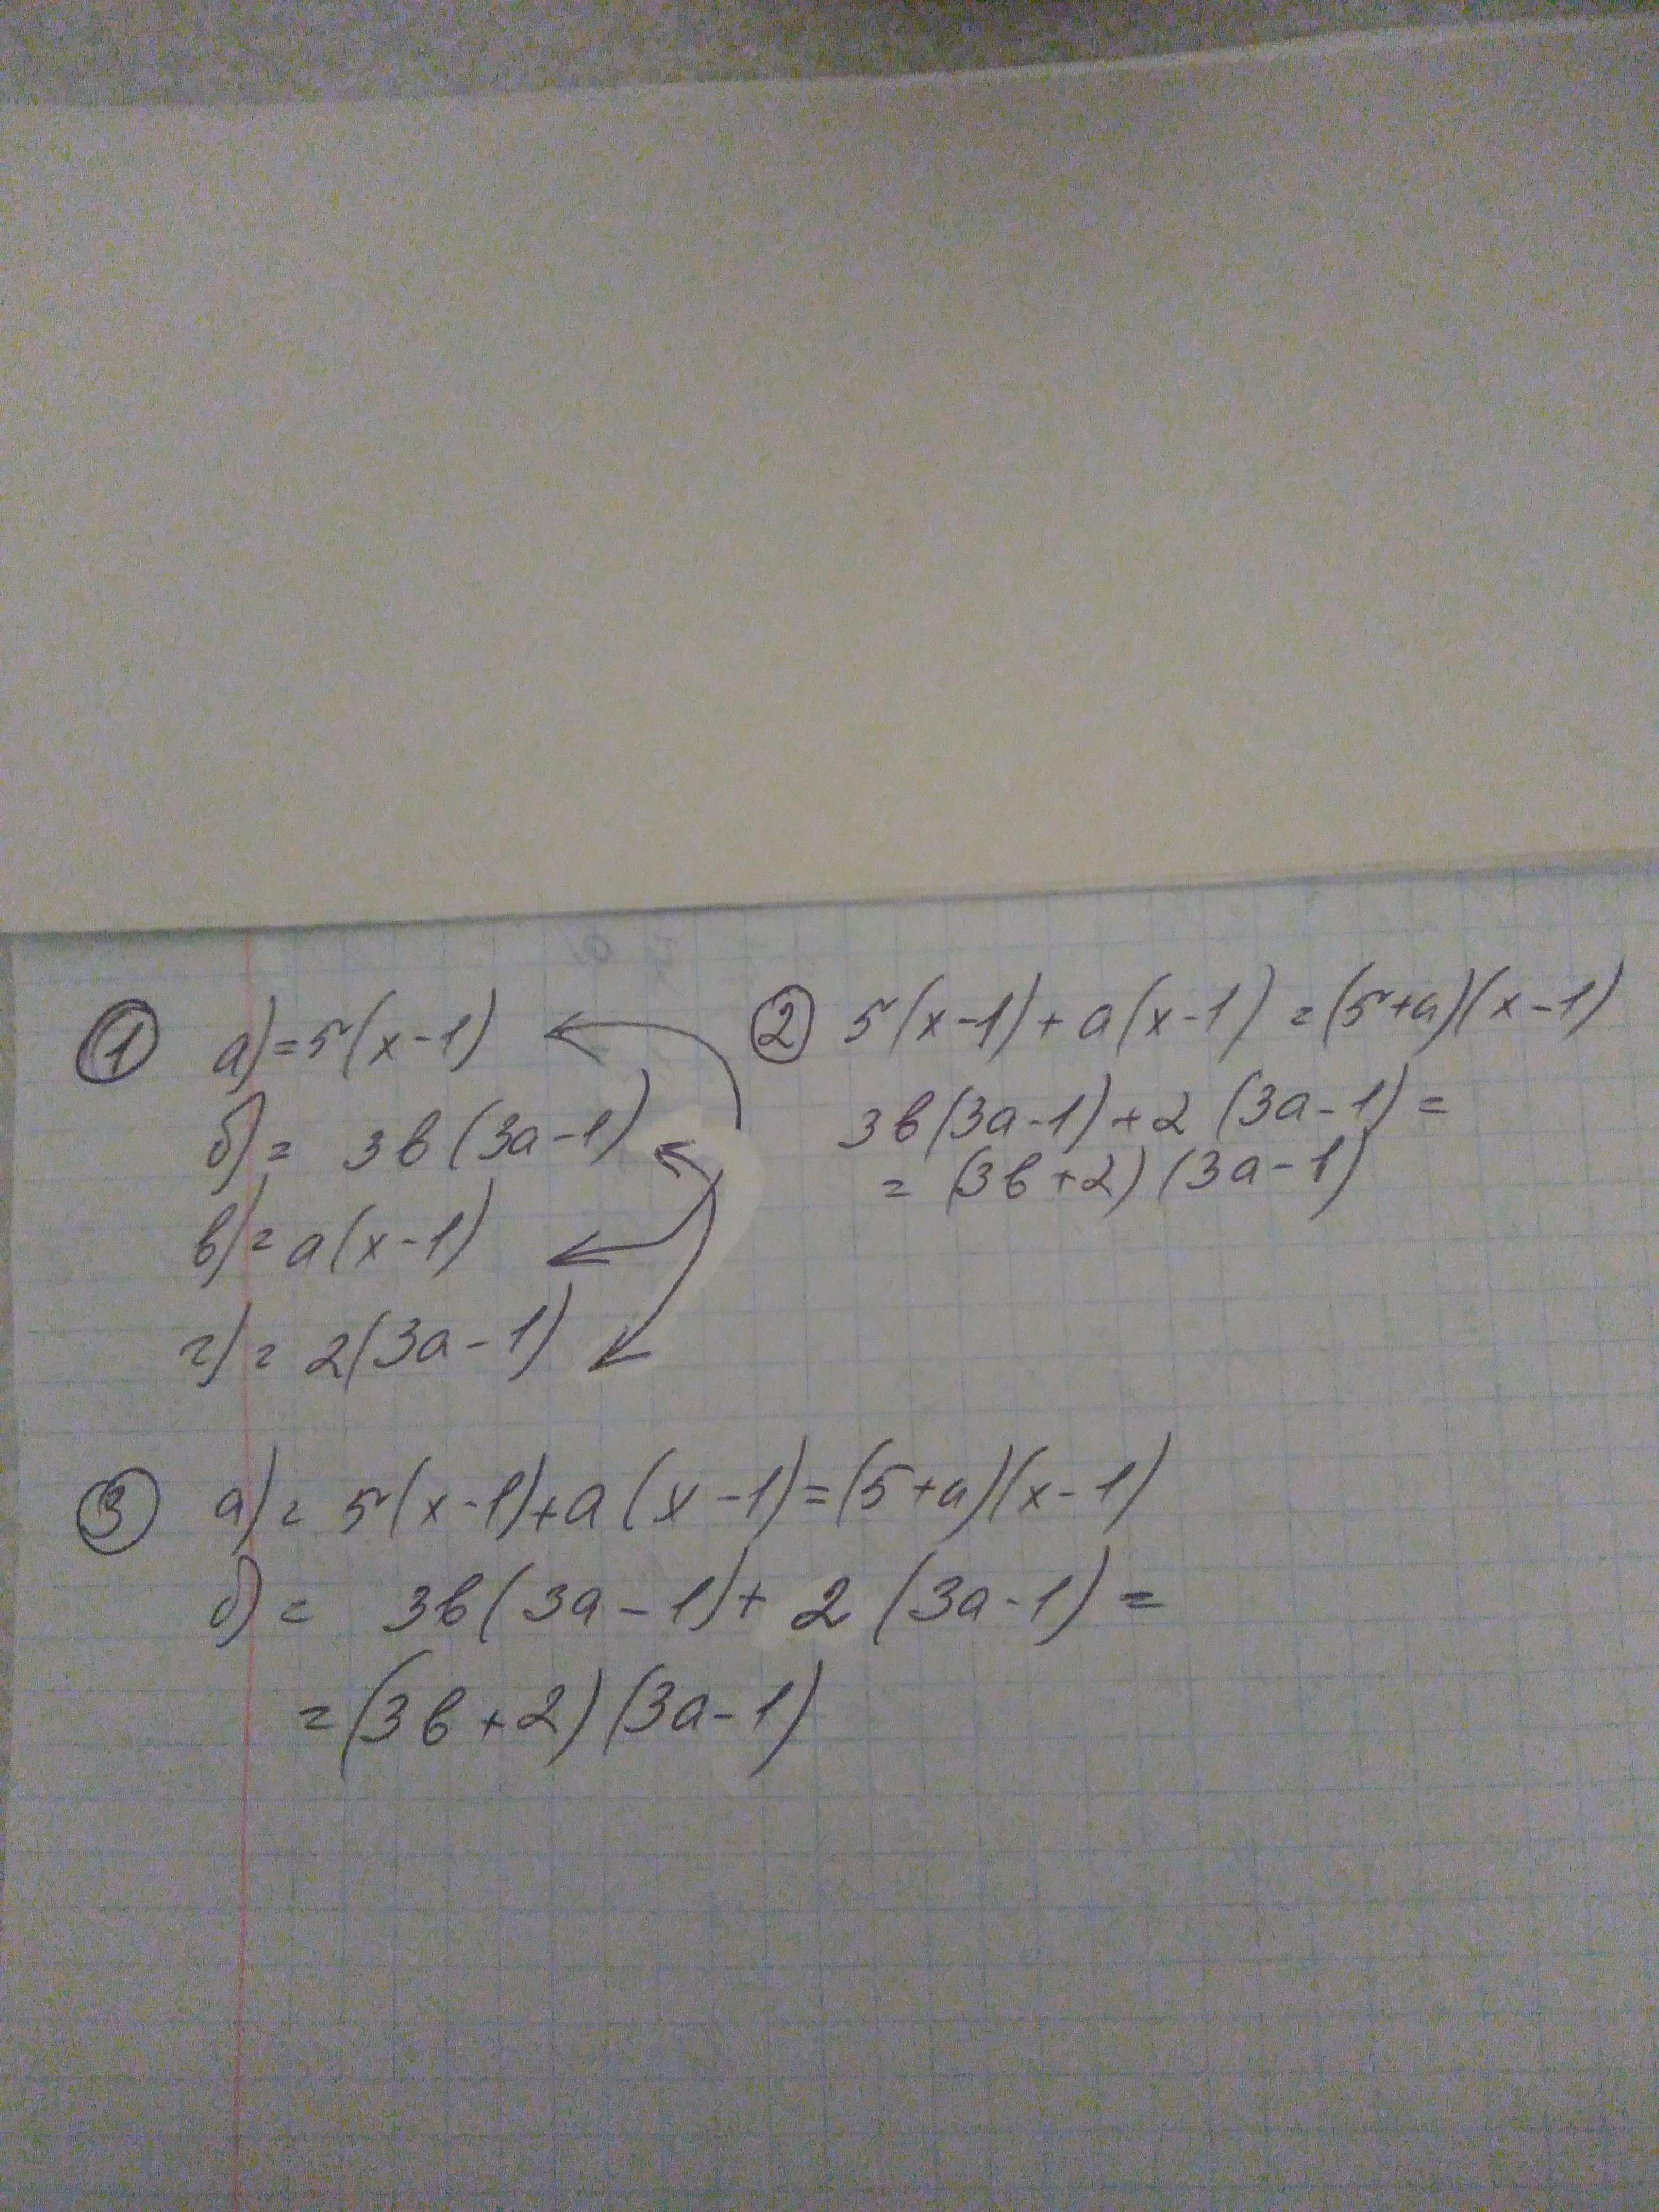 ① а) = 5(x-1)
б) = 3в(3а-1)
в) = а(x-1)
г) = 2(3а-1)
② 5(x-1)+а(x-1) = (5+а)(x-1)
3в(3а-1)+2(3а-1) =
= (3в+2)(3а-1)
③ а) = 5(x-1)+а(x-1)=(5+а)(x-1)
б) = 3в(3а-1)+2(3а-1) =
= (3в+2)(3а-1)